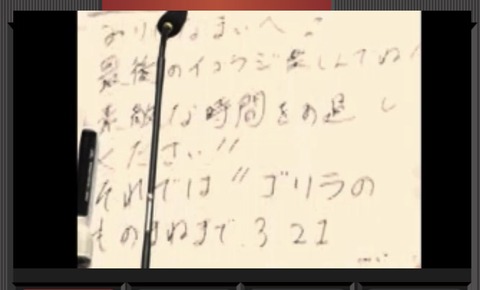 最後のイコラジ楽しんでね
素敵な時間をお過し
ください〃
それでは〃ゴリラの
ものまねまで 3 2 1